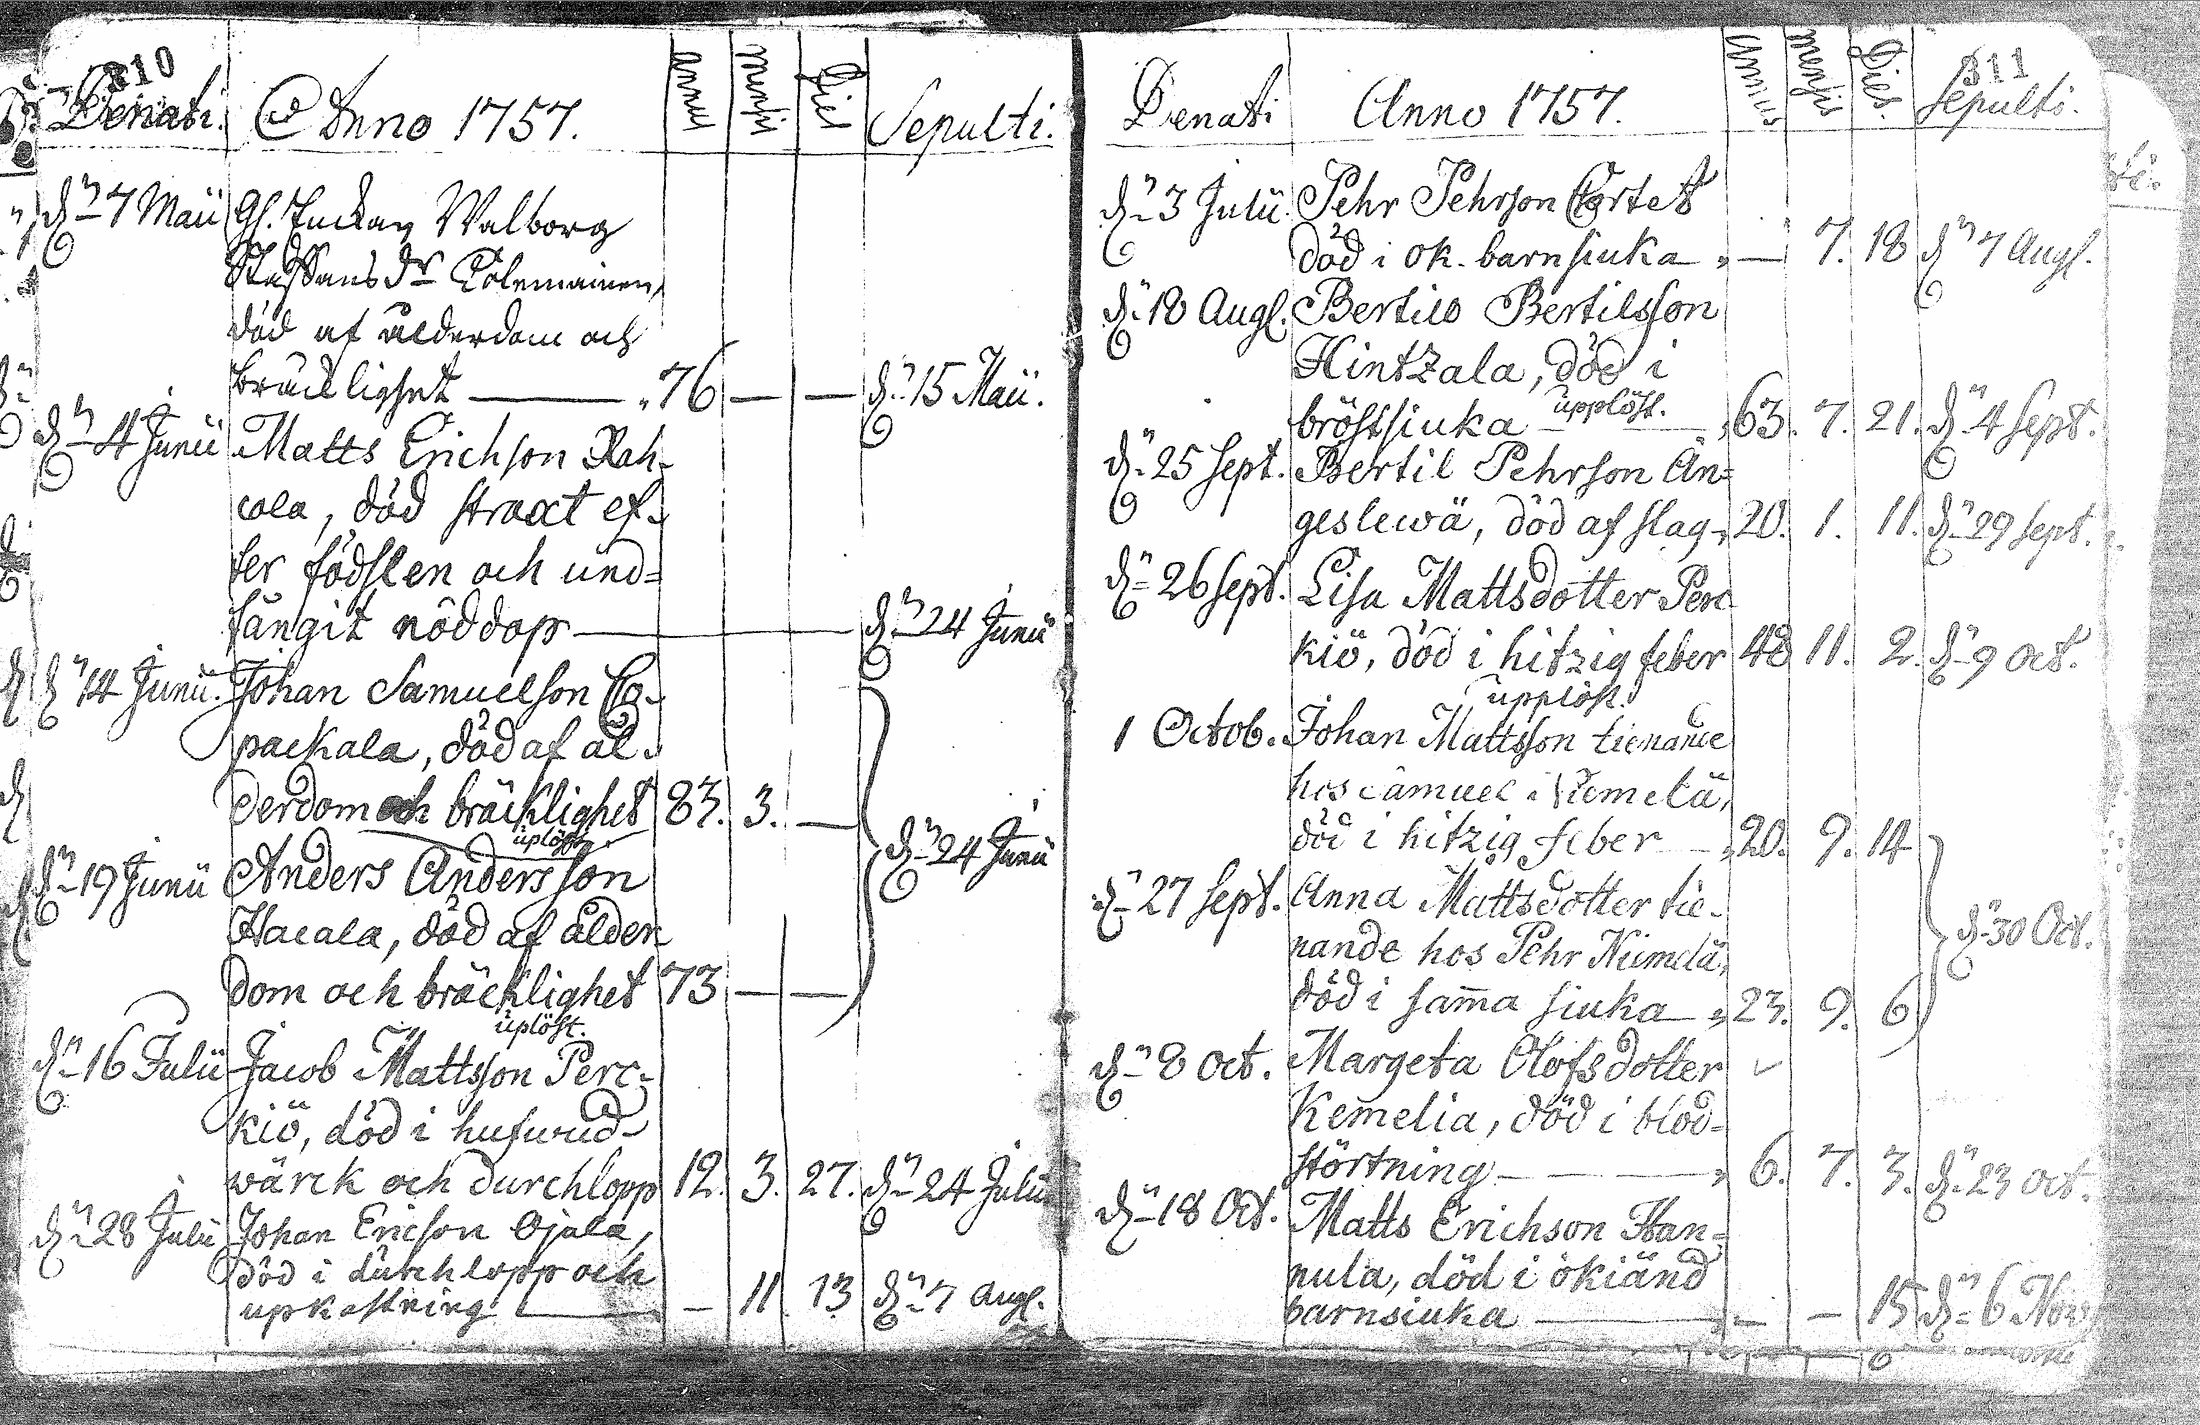 310
Denati. Anno 1757. Annus Mensis Dies Sepulti.
dn 7 Maii Gl. Enckan Walborg
Staffans dr Tolemainen,
död af ålderdom och
bräcklighet 76 — — dn 15 Maii.
dn 4 Junii Matts Erichson Rah-
cola, död straxt ef-
ter födslen och und-
fångit nöddop dn 24 Junii
dn 14 Junii. Johan Samuelson Co-
packala, död af ål-
derdom och bräcklighet 83. 3. —
uplöst.
dn 19 Junii Anders Andersson dn 24 Junii
Hacala, död af ålder-
dom och bräcklighet 73 — —
uplöst.
dn 16 Julii Jacob Mattsson Perc-
kiö, död i hufwud-
wärck och durchlopp 12. 3. 27. dn 24 Julii
dn 28 Julii Johan Ericson Ojala,
död i durchlopp och
upkastning — 11 13 dn 7 Augl.
311
Denati Anno 1757. Annus Mensis Dies. Sepulti.
dn 3 Julii Pehr Pehrson Cortet
död i ok. barnsiuka — 7. 18 dn 7 Augl.
dn 18 Augl. Bertil Bertilsson
Hintzala, död i
upplöst.
bröstsiuka 63. 7. 21. dn 4 Sept.
dn 25 Sept. Bertil Pehrson Än-
geslewä, död af slag 20. 1. 11. dn 29 Sept.
dn 26 Sept. Lisa Mattsdotter Perc-
kiö, död i hitzig feber 48 11. 2. dn 9 Oct.
upplöst.
1 Octob. Johan Mattsson tienande
hos Samuel i Niemelä,
död i hitzig feber 20. 9. 14
dn 27 Sept. Anna Mattsdotter tie-
nande hos Pehr Niemelä, dn 30 Oct.
död i sam̄a siuka 23. 9. 6
dn 8 Oct. Margeta Olofsdotter
Kemelia, död i blod-
störtning 6. 7. 3. dn 23 Oct.
dn 18 Oct. Matts Erichson Han-
nula, död i okiänd
barnsiuka — — 15 dn 6 Nov